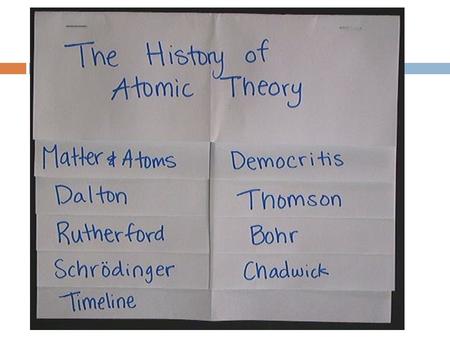 The History of
Atomic Theory
Matter & Atoms
Democritis
Dalton
Thomson
Rutherford
Bohr
Schrödinger
Chadwick
Timeline